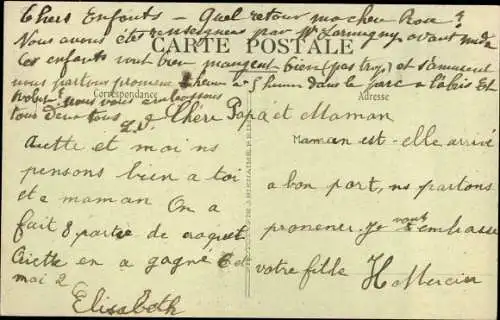 Chers Enfants — Quel retour ma chere Rose?
Nous avons été renseignés par Mr Larmigny avant midi
CARTE POSTALE
Ces enfants vont bien mangent bien (pas trop) et s'amusent
nous partons promener heures à 5 heures dans le parc à l'abri Et
Robert? nous vous embrassons
Correspondance
Adresse
tous deux tous
Chère Papa et Maman
Criette et moi ns
pensons bien a toi
et a maman On a
fait 8 partie de croquet
Criette en a gagné 6 et
moi 2
Elisabeth
Maman est-elle arrivé
a bon port, ns partons
promener. Je vous embrasse
votre fille H Mercier